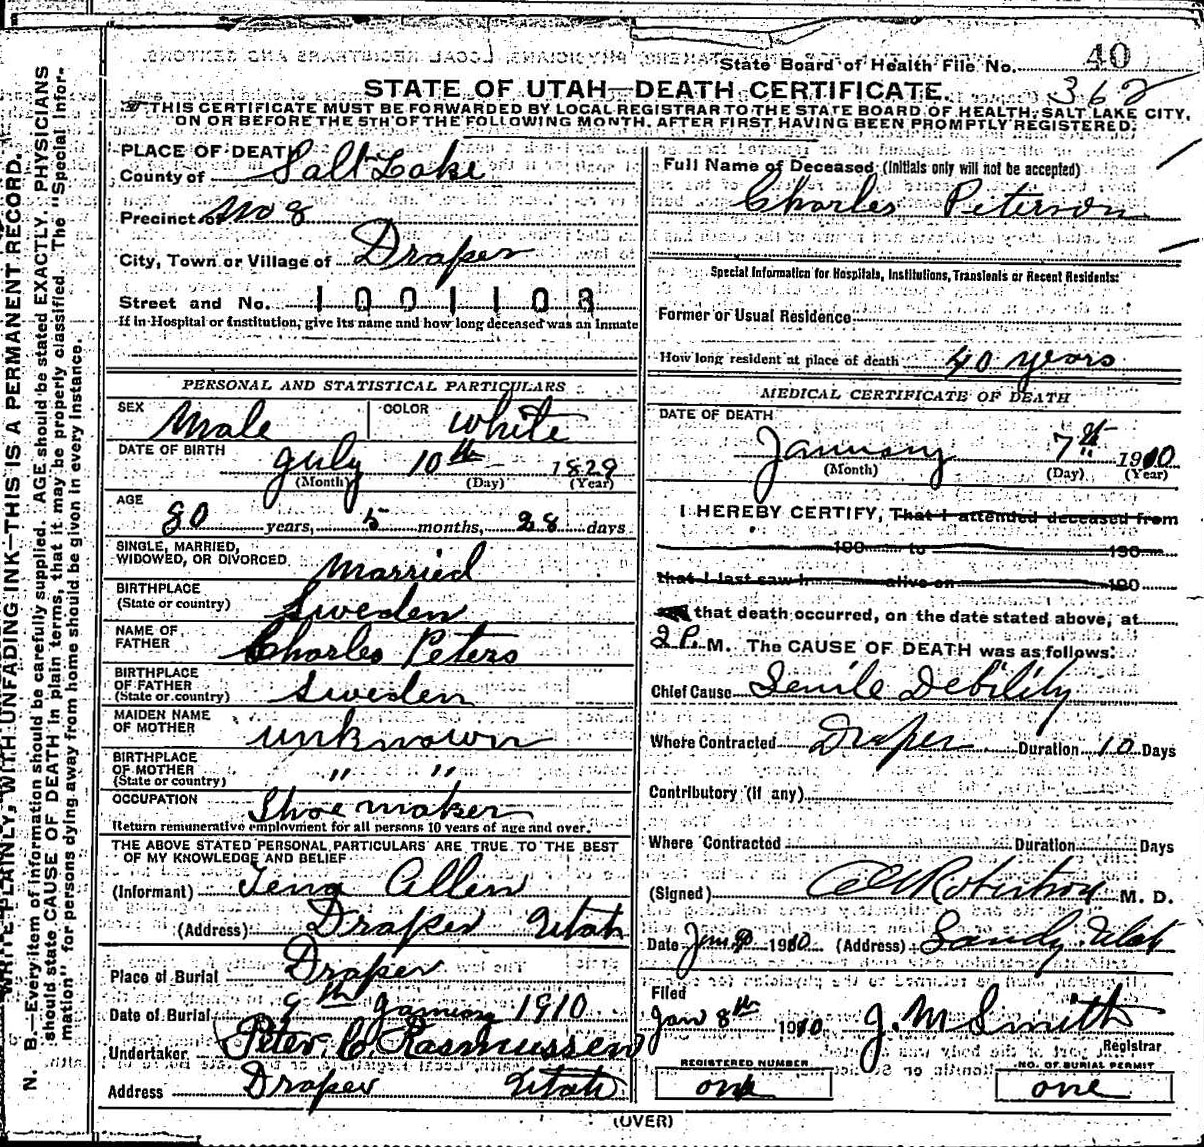 State Board of Health File No. 40
362
STATE OF UTAH—DEATH CERTIFICATE.
THIS CERTIFICATE MUST BE FORWARDED BY LOCAL REGISTRAR TO THE STATE BOARD OF HEALTH, SALT LAKE CITY,
ON OR BEFORE THE 5TH OF THE FOLLOWING MONTH, AFTER FIRST HAVING BEEN PROMPTLY REGISTERED.
WRITE PLAINLY, WITH UNFADING INK—THIS IS A PERMANENT RECORD.
N. B.—Every item of information should be carefully supplied. AGE should be stated EXACTLY. PHYSICIANS
should state CAUSE OF DEATH in plain terms, that it may be properly classified. The "Special Infor-
mation" for persons dying away from home should be given in every instance.
PLACE OF DEATH
County of Salt Lake
Precinct of No 8
City, Town or Village of Draper
Street and No. 1001108
If in Hospital or Institution, give its name and how long deceased was an inmate
PERSONAL AND STATISTICAL PARTICULARS
SEX Male COLOR white
DATE OF BIRTH July 10th 1829
(Month) (Day) (Year)
AGE 80 years, 5 months, 28 days
SINGLE, MARRIED,
WIDOWED, OR DIVORCED Married
BIRTHPLACE
(State or country) Sweden
NAME OF
FATHER Charles Peters
BIRTHPLACE
OF FATHER
(State or country) Sweden
MAIDEN NAME
OF MOTHER unknown
BIRTHPLACE
OF MOTHER
(State or country) " "
OCCUPATION Shoe maker
Return remunerative employment for all persons 10 years of age and over.
THE ABOVE STATED PERSONAL PARTICULARS ARE TRUE TO THE BEST
OF MY KNOWLEDGE AND BELIEF
(Informant) Tena Allen
(Address) Draper Utah
Place of Burial Draper
Date of Burial 9th January 1910
Undertaker Peter C. Rasmussen
Address Draper Utah
Full Name of Deceased (Initials only will not be accepted)
Charles Peterson
Special Information for Hospitals, Institutions, Transients or Recent Residents:
Former or Usual Residence
How long resident at place of death 40 years
MEDICAL CERTIFICATE OF DEATH
DATE OF DEATH
January 7th 1910
(Month) (Day) (Year)
I HEREBY CERTIFY, That I attended deceased from
190 to 190
that I last saw h alive on 190
that death occurred, on the date stated above, at
2 P. M. The CAUSE OF DEATH was as follows:
Chief Cause Senile Debility
Where Contracted Draper Duration 10 Days
Contributory (if any)
Where Contracted Duration Days
(Signed) Robertson M. D.
Date Jan 1910 (Address) Sandy Utah
Filed
Jan 8th 1910 J. M Smith
Registrar
REGISTERED NUMBER
one
NO. OF BURIAL PERMIT
one
(OVER)